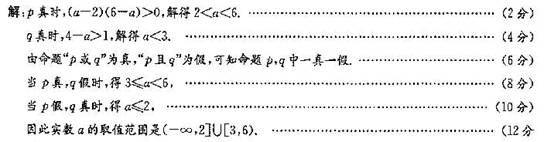 解:p真时,(a-2)(6-a)>0,解得2<a<6. …………………………(2分)
q真时,4-a>1,解得a<3. …………………………(4分)
由命题“p或q”为真,“p且q”为假,可知命题p,q中一真一假. …………………………(6分)
当p真,q假时,得3≤a<6, …………………………(8分)
当p假,q真时,得a≤2, …………………………(10分)
因此实数a的取值范围是(-∞,2]∪[3,6). …………………………(12分